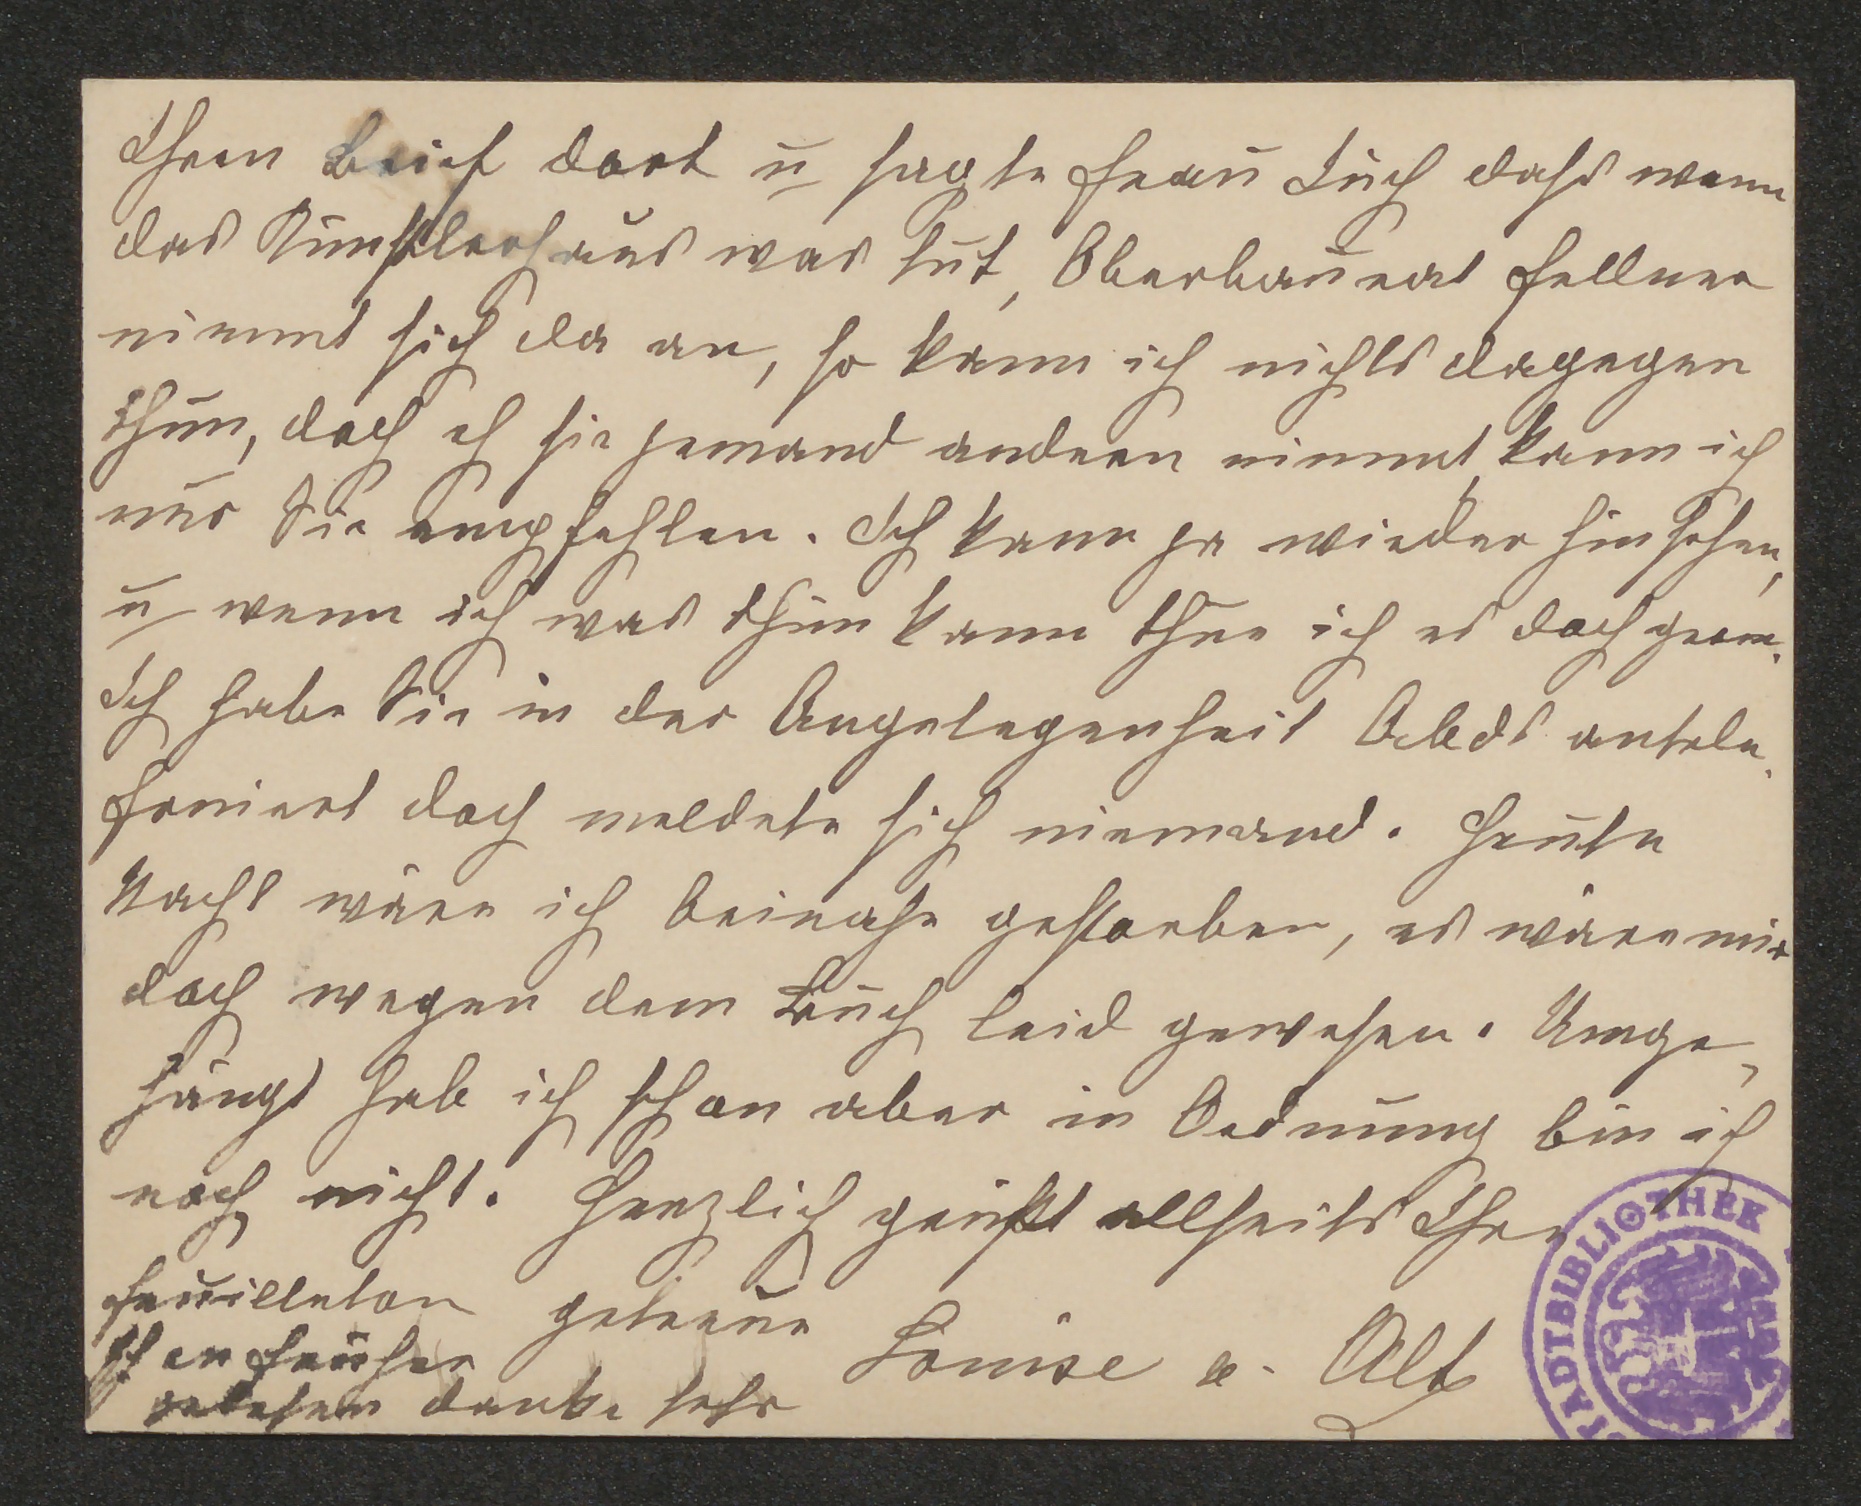 Ihren Brief dort u sagte Frau Tuch dass wenn
das Künstlerhaus was tut, Oberbaurat Fellner
nimmt sich da an, so kann ich nichts dagegen
thun, doch eh sie jemand andern nimmt kann ich
nur Sie empfehlen. Ich kann ja wieder hinsehen,
u wenn ich was thun kann thue ich es doch gern.
Ich habe Sie in der Angelegenheit antele-
foniert doch meldete sich niemand. Heute
Nacht wäre ich beinahe gestorben, es wäre mir
doch wegen dem Buch leid gewesen. Umge-
hängt hab ich schon aber in Ordnung bin ich
noch nicht. Herzlich grüßt allseits Ihre
getreue Louise v. Alt
Feuilleton
schon früher
gelesen danke sehr
STADTBIBLIOTHEK